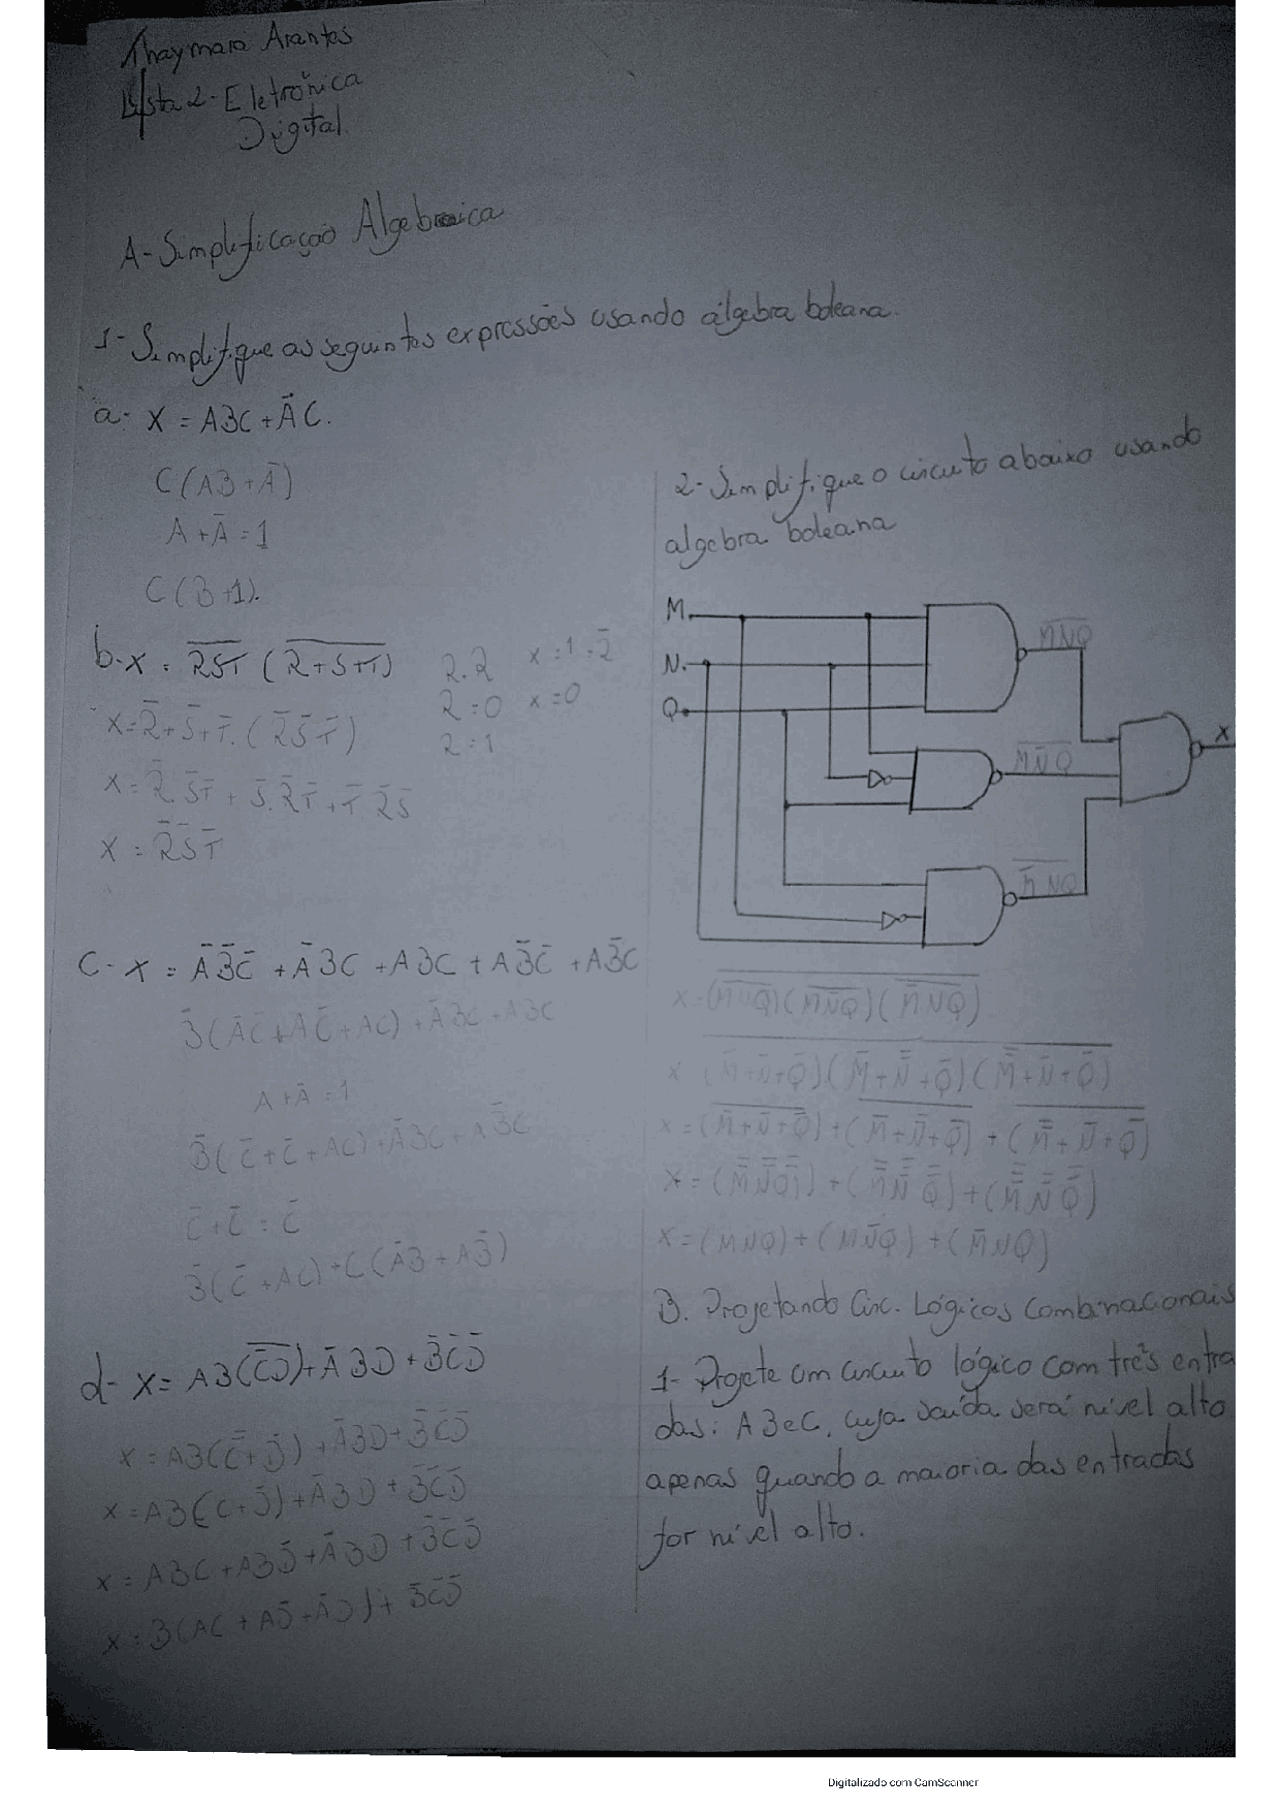 Thaymara Arantes
Lista 2 - Eletrônica
Digital.
A - Simplificação Algebraica
1 - Simplifique as seguintes expressões usando álgebra boleana.
a - X = ABC + A̅ C.
C(AB + A̅)
A + A̅ = 1
C(B + 1).
b - X = \overline{RST} (\overline{R+S+T})
X = R̅ + S̅ + T̅ . (R̅ S̅ T̅)
X = R̅ S̅T̅ + S̅. R̅T̅ + T̅ R̅S̅
X = R̅ S̅ T̅
R . R̅
R = 0
R = 1
x = 0
C - X = A̅B̅C̅ + A̅BC + ABC + AB̅C̅ + AB̅C
B̅(A̅C̅ + AC̅ + AC) + A̅BC + ABC
A + A̅ = 1
B̅(C̅ + C̅ + AC) + A̅BC + AB̅C
C̅ + C̅ = C̅
B̅(C̅ + AC) + C(A̅B + AB̅)
d - X = AB(\overline{C̅D}) + A̅BD + B̅C̅D̅
X = AB(C̿ + D̅) + A̅BD + B̅C̅D̅
X = AB(C + D̅) + A̅BD + B̅C̅D̅
X = ABC + ABD̅ + A̅BD + B̅C̅D̅
X = B(AC + AD̅ + A̅D) + B̅C̅D̅
2 - Simplifique o circuito abaixo usando
algebra boleana
M
N
Q
\overline{MNQ}
\overline{MN̅Q}
\overline{M̅NQ}
X
X = \overline{(\overline{MNQ})(\overline{MN̅Q})(\overline{M̅NQ})}
X \overline{(M̅+N̅+Q̅)(M̅+N̿+Q̅)(M̿+N̅+Q̅)}
X = (\overline{M̅+N̅+Q̅}) + (\overline{M̅+N̿+Q̅}) + (\overline{M̿+N̅+Q̅})
X = (M̿ N̿ Q̿) + (M̿ \overline{N̿} Q̿) + (\overline{M̿} N̿ Q̿)
X = (MNQ) + (MN̅Q) + (M̅NQ)
B. Projetando Circ. Lógicos Combinacionais
1 - Projete um circuito lógico com três entra
das: A B e C, cuja saída será nível alto
apenas quando a maioria das entradas
for nível alto.
Digitalizado com CamScanner